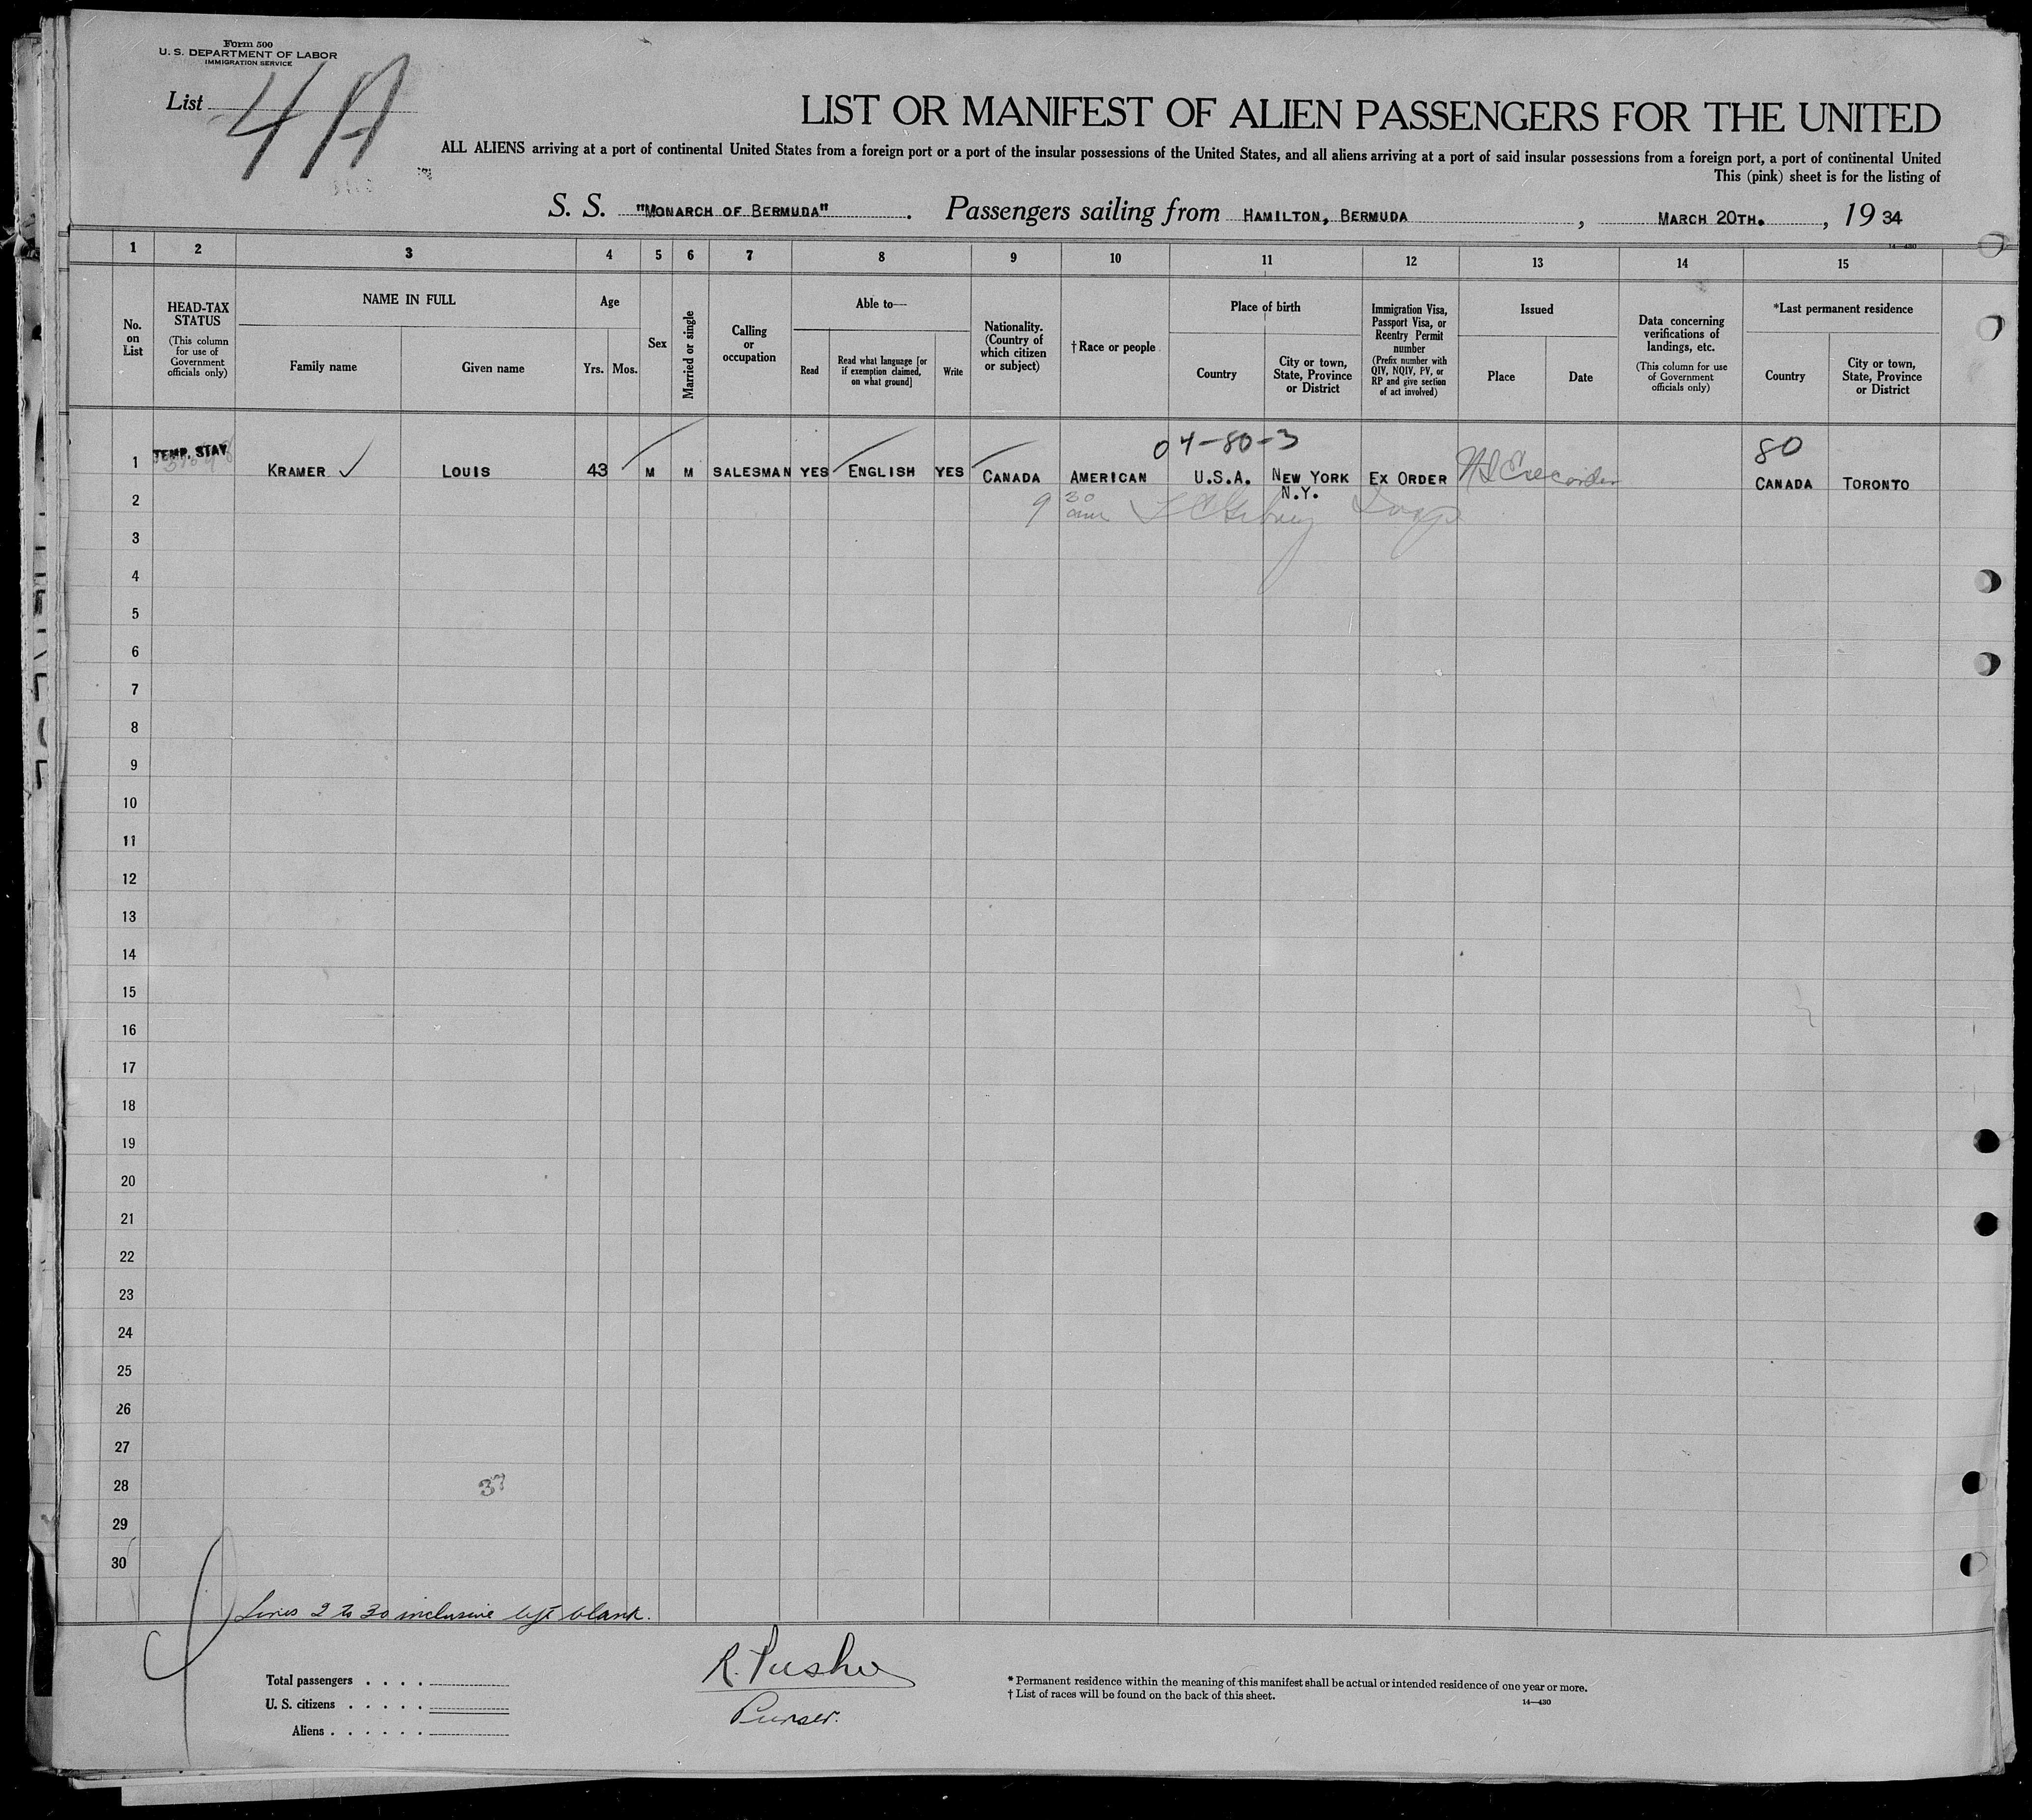 Form 500
U. S. DEPARTMENT OF LABOR
IMMIGRATION SERVICE
List 4A
LIST OR MANIFEST OF ALIEN PASSENGERS FOR THE UNITED
ALL ALIENS arriving at a port of continental United States from a foreign port or a port of the insular possessions of the United States, and all aliens arriving at a port of said insular possessions from a foreign port, a port of continental United
This (pink) sheet is for the listing of
S. S. "MONARCH OF BERMUDA". Passengers sailing from HAMILTON, BERMUDA, MARCH 20TH., 1934
14—430
1 2 3 4 5 6 7 8 9 10 11 12 13 14 15
No. on List
HEAD-TAX STATUS
(This column for use of Government officials only)
NAME IN FULL
Family name
Given name
Age
Yrs.
Mos.
Sex
Married or single
Calling or occupation
Able to—
Read
Read what language [or if exemption claimed, on what ground]
Write
Nationality. (Country of which citizen or subject)
†Race or people
Place of birth
Country
City or town, State, Province or District
Immigration Visa, Passport Visa, or Reentry Permit number
(Prefix number with QIV, NQIV, PV, or RP and give section of act involved)
Issued
Place
Date
Data concerning verifications of landings, etc.
(This column for use of Government officials only)
*Last permanent residence
Country
City or town, State, Province or District
04-80-3
80
TEMP. STAY
1 KRAMER ✓ LOUIS 43 M M SALESMAN YES ENGLISH YES CANADA AMERICAN U.S.A. NEW YORK N.Y. EX ORDER CANADA TORONTO
2 9 30 am
3
4
5
6
7
8
9
10
11
12
13
14
15
16
17
18
19
20
21
22
23
24
25
26
27
28 37
29
30
Lines 2 to 30 inclusive left blank.
Total passengers
U. S. citizens
Aliens
Purser.
* Permanent residence within the meaning of this manifest shall be actual or intended residence of one year or more.
† List of races will be found on the back of this sheet.
14—430